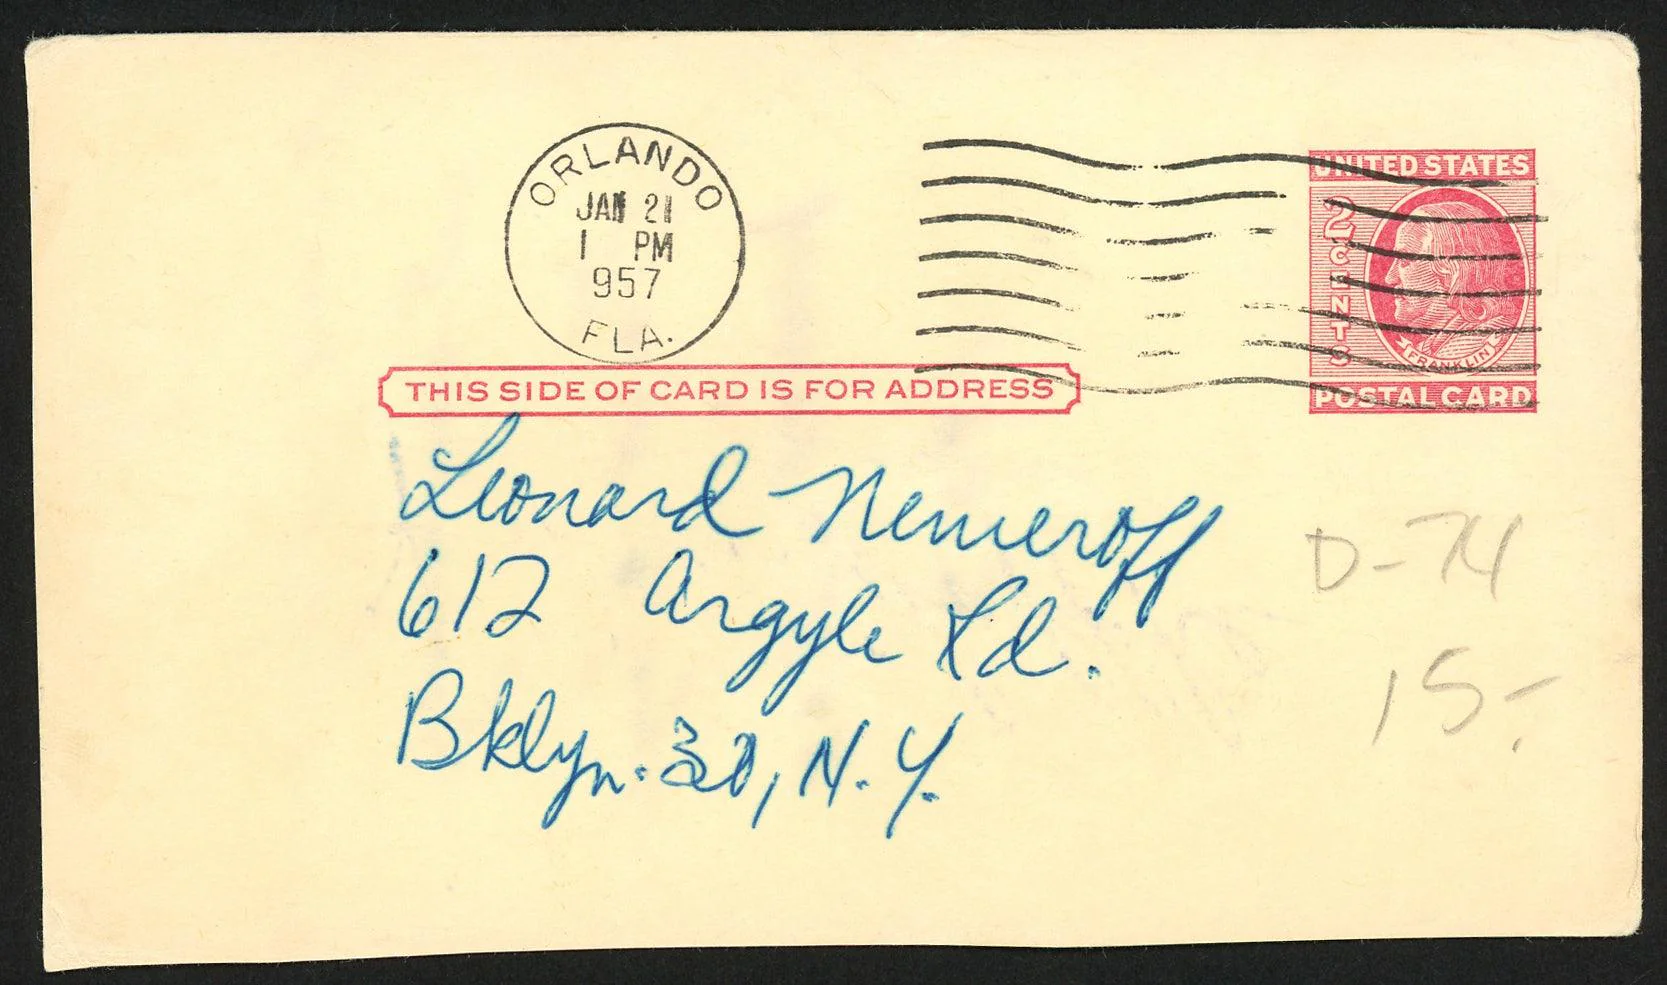 ORLANDO
JAN 21
1 PM
957
FLA.
UNITED STATES
2 CENTS
FRANKLIN
POSTAL CARD
THIS SIDE OF CARD IS FOR ADDRESS
Leonard Nemeroff
612 Argyle Rd.
Bklyn. 30, N.Y.
D-74
15-